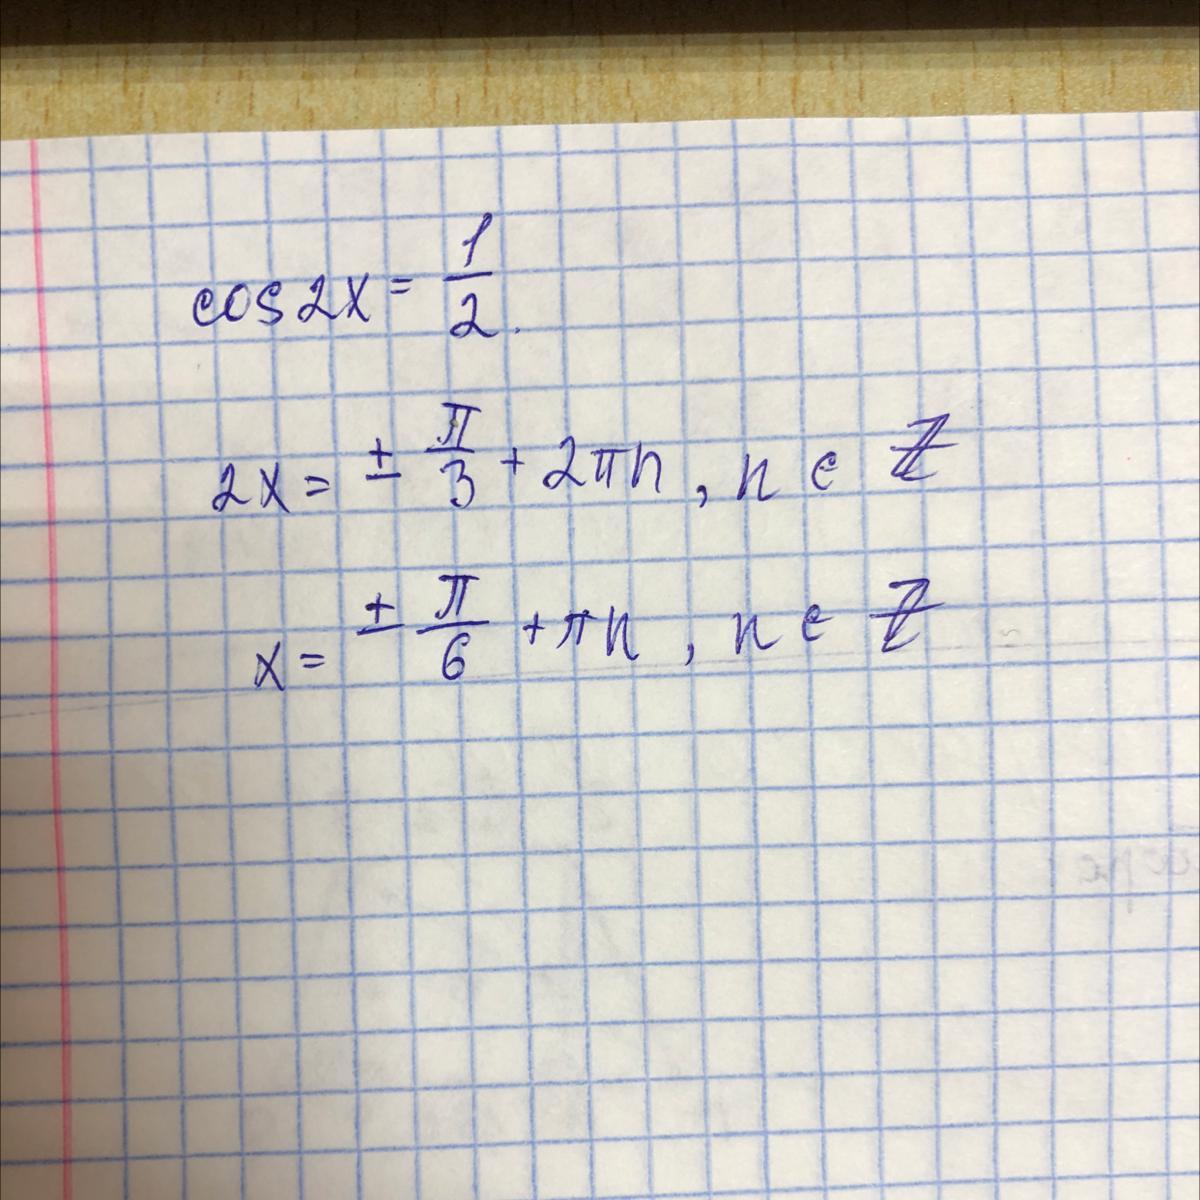 cos2x = 1/2.
2x = ± π/3 + 2πn, n ∈ ℤ
x = ± π/6 + πn, n ∈ ℤ